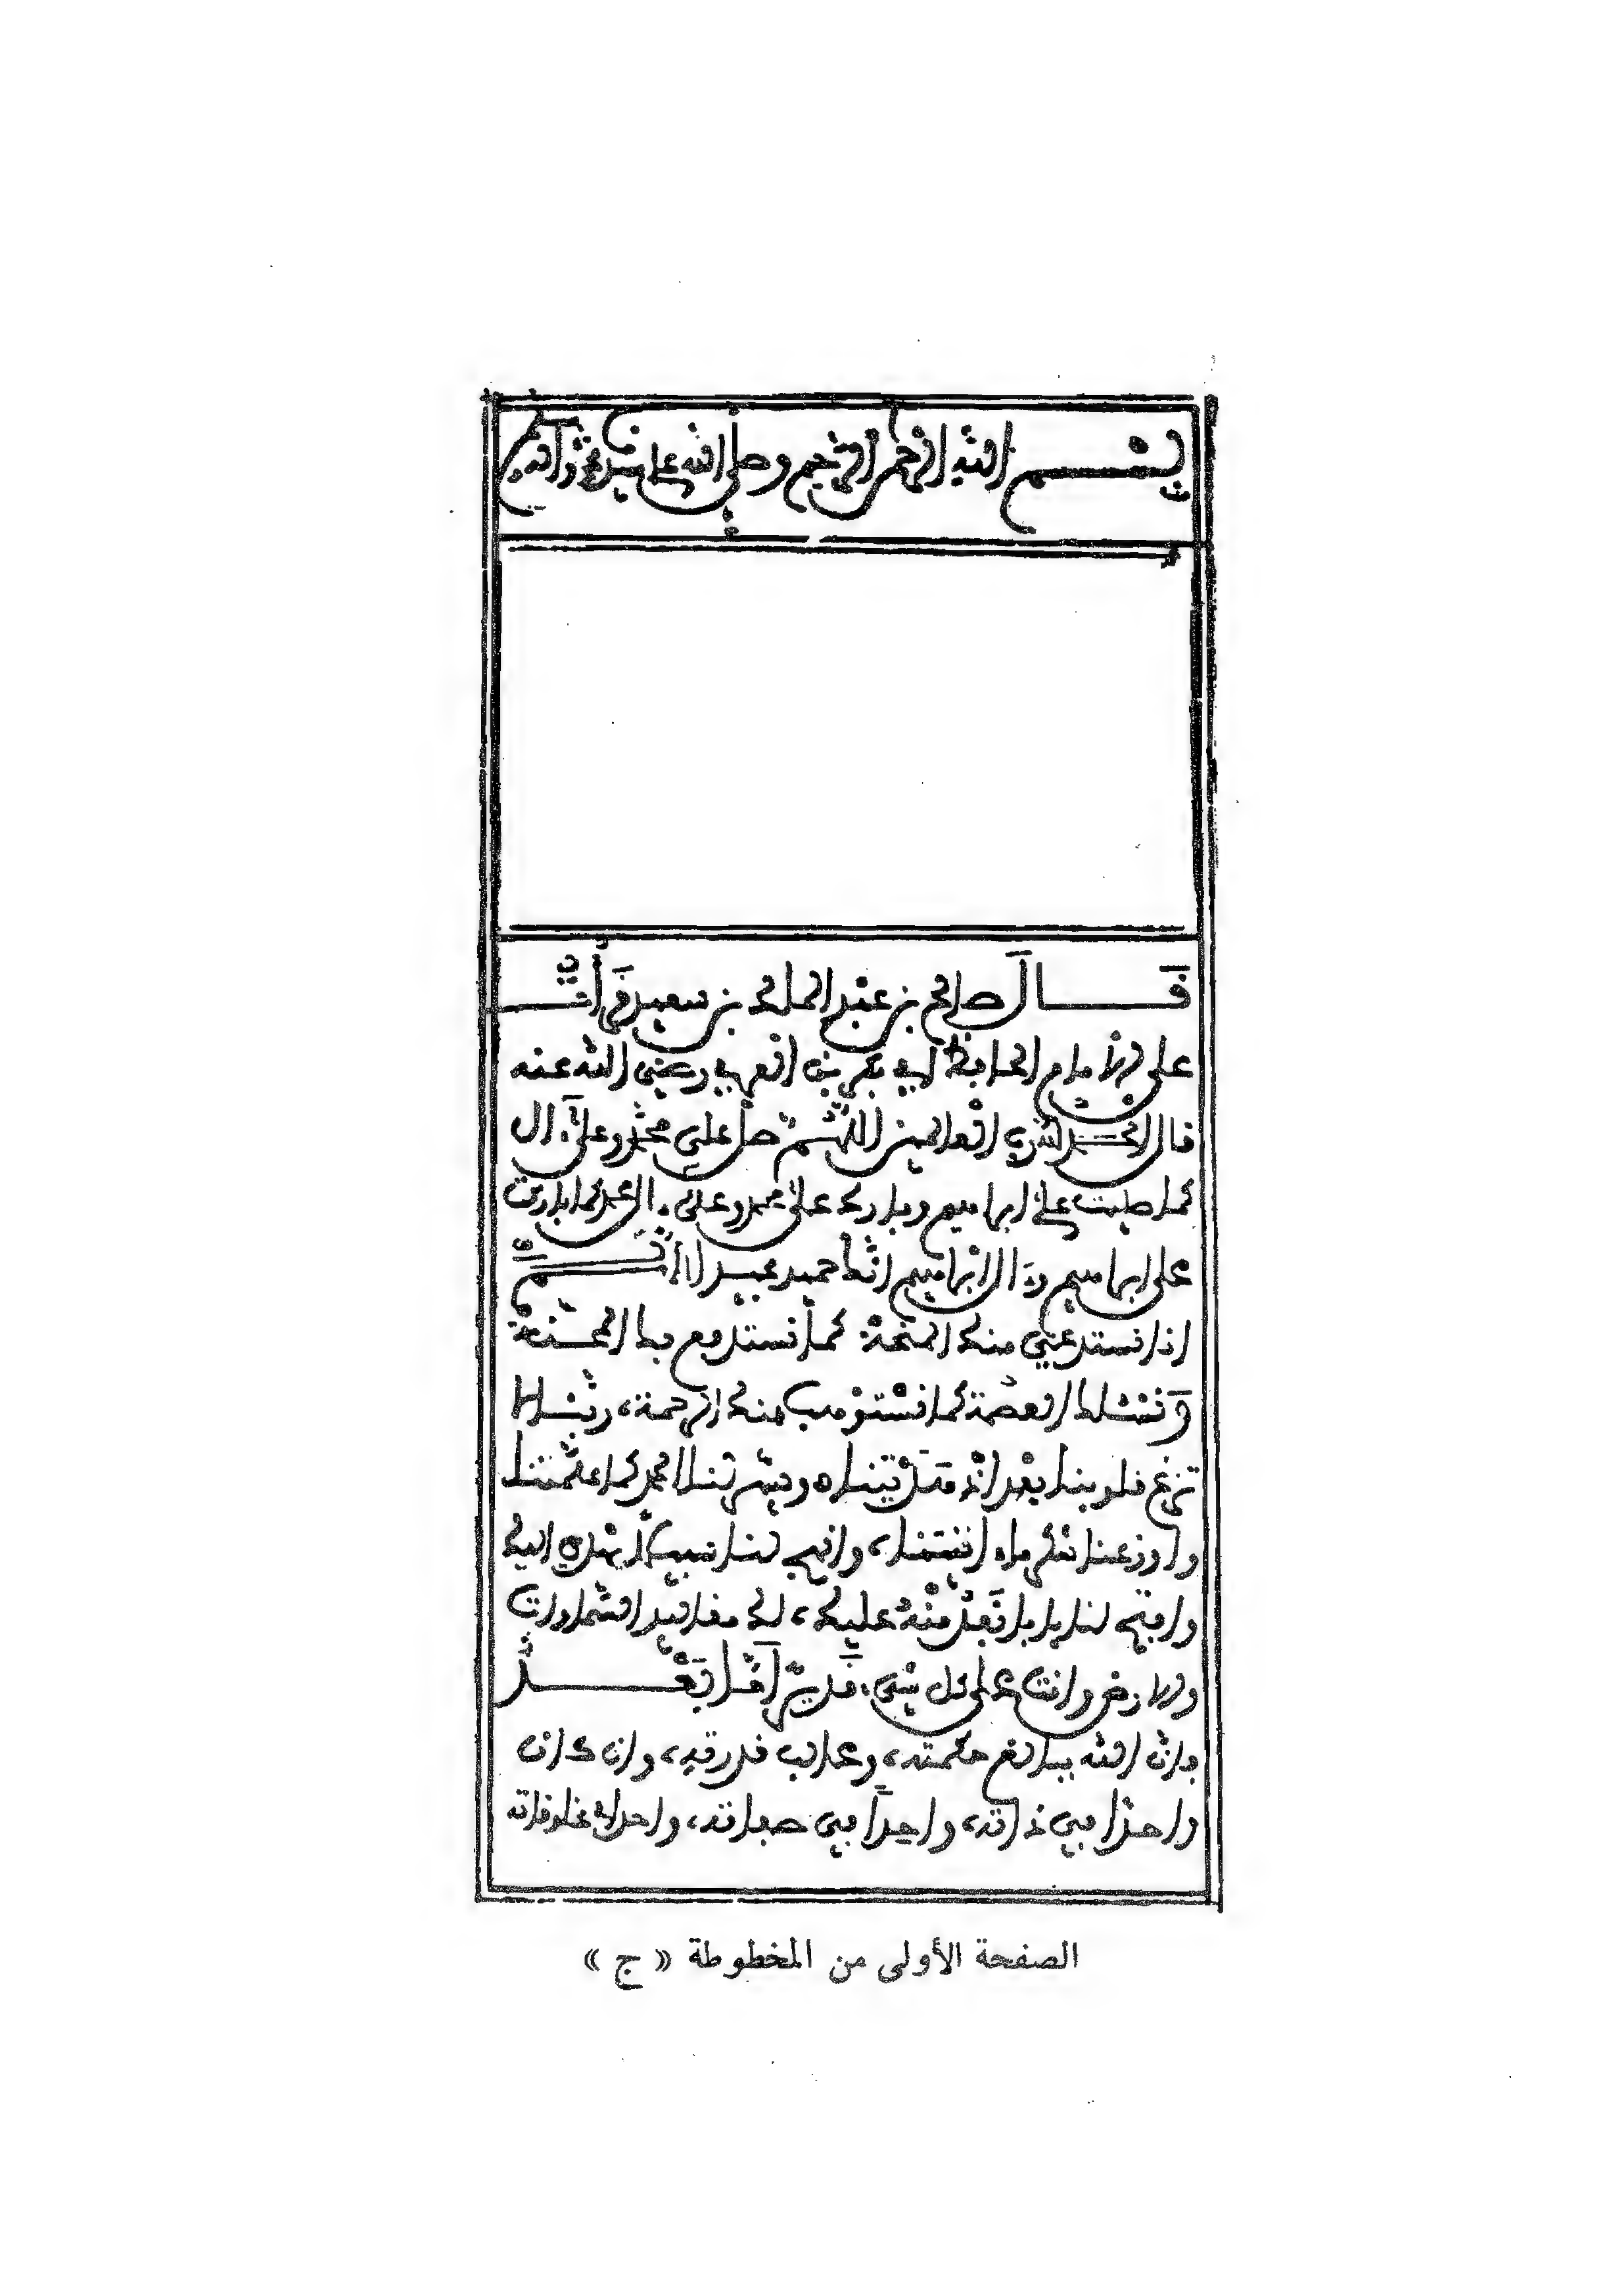 بسم الله الرحمن الرحيم وصلى الله على سيدنا محمد وآله
قال صالح بن عبد الملك بن سعيد قرأت
على الإمام الحافظ أبي بكر بن العربي رضي الله عنه
قال الحمد لله رب العالمين اللهم صل على محمد وعلى آل
كما صليت على ابراهيم وبارك على محمد وعلى آل محمد كما باركت
على ابراهيم وآل ابراهيم انك حميد مجيد اللهم
انا نستدعي منك المنحة كما نستدفع بك المحنة
ونسئلك العصمة كما نستوهب منك الرحمة، ربنا لا
تزغ قلوبنا بعد اذ هديتنا ويسر لنا العمل كما علمتنا
واوزعنا شكر ما اتيتنا، وانهج لنا سبيلا يهدي اليك
وافتح لنا بابا نفد منه عليك، لك مقاليد السماوات
والارض وانت على كل شيء قدير أما بعد
فان الله ببالغ حكمته، وغالب قدرته، وان كان
واحدا في ذاته، واحدا في صفاته، واحدا في مخلوقاته
الصفحة الأولى من المخطوطة « ج »